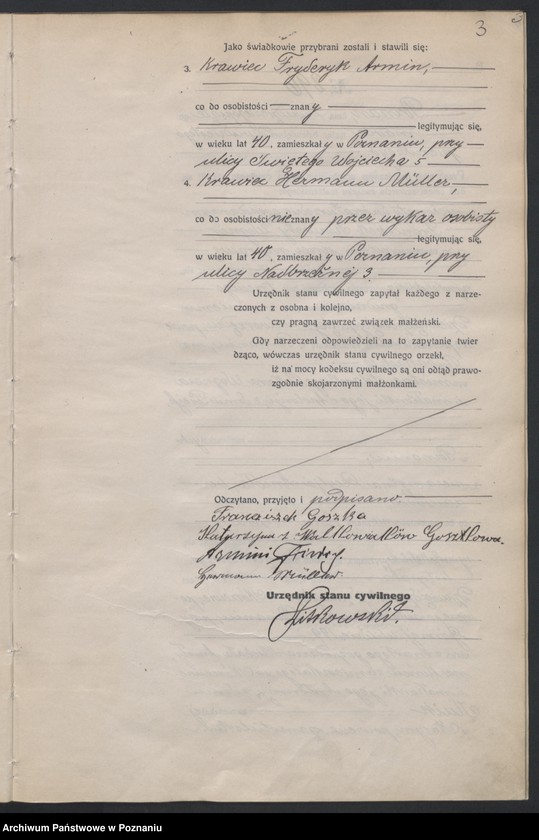 3
Jako świadkowie przybrani zostali i stawili się:
3. Krawiec Fryderyk Armin,
co do osobistości znany
legitymując się,
w wieku lat 40, zamieszkały w Poznaniu, przy
ulicy Świętego Wojciecha 5
4. Krawiec Hermann Müller,
co do osobistości nieznany przez wykaz osobisty
legitymując się,
w wieku lat 40, zamieszkały w Poznaniu, przy
ulicy Nadbrzeżnej 3.
Urzędnik stanu cywilnego zapytał każdego z narze-
czonych z osobna i kolejno,
czy pragną zawrzeć związek małżeński.
Gdy narzeczeni odpowiedzieli na to zapytanie twier
dząco, wówczas urzędnik stanu cywilnego orzekł,
iż na mocy kodeksu cywilnego są oni odtąd prawo-
zgodnie skojarzonymi małżonkami.
Odczytano, przyjęto i podpisano.
Franciszek Goszka
Katarzyna z
Armin
Hermann Müller
Urzędnik stanu cywilnego
Archiwum Państwowe w Poznaniu